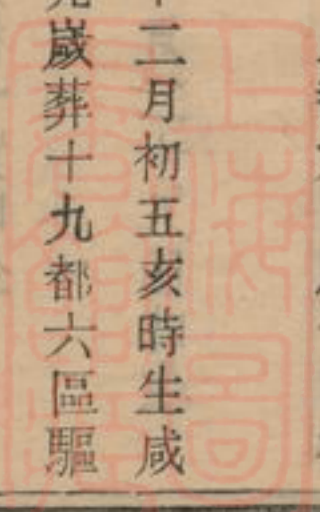 二月初五亥時生咸
歲葬十九都六區驅